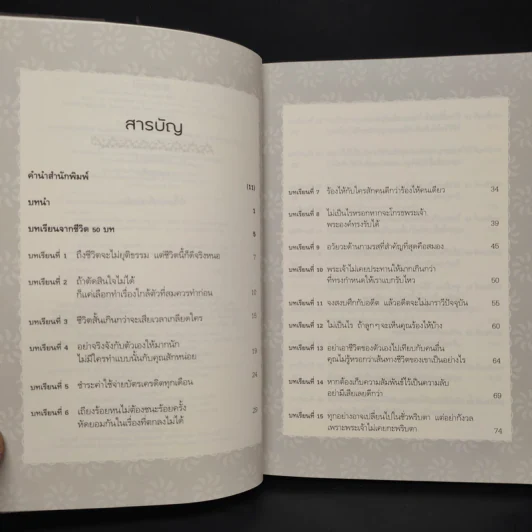 สารบัญ
คำนำสำนักพิมพ์ (11)
บทนำ 1
บทเรียนจากชีวิต 50 บท 5
บทเรียนที่ 1 ถึงชีวิตจะไม่ยุติธรรม แต่ชีวิตนี้ก็ดีจริงหนอ 7
บทเรียนที่ 2 ถ้าตัดสินใจไม่ได้
ก็แค่เลือกทำเรื่องใกล้ตัวที่สมควรทำก่อน 12
บทเรียนที่ 3 ชีวิตสั้นเกินกว่าจะเสียเวลาเกลียดใคร 15
บทเรียนที่ 4 อย่าจริงจังกับตัวเองให้มากนัก
ไม่มีใครทำแบบนั้นกับคุณสักหน่อย 19
บทเรียนที่ 5 ชำระค่าใช้จ่ายบัตรเครดิตทุกเดือน 24
บทเรียนที่ 6 เถียงร้อยหนไม่ต้องชนะร้อยครั้ง
หัดยอมกันในเรื่องที่ตกลงไม่ได้ 29
บทเรียนที่ 7 ร้องไห้กับใครสักคนดีกว่าร้องไห้คนเดียว 34
บทเรียนที่ 8 ไม่เป็นไรหรอกหากจะโกรธพระเจ้า
พระองค์ทรงรับได้ 39
บทเรียนที่ 9 อวัยวะด้านกามรสที่สำคัญที่สุดคือสมอง 45
บทเรียนที่ 10 พระเจ้าไม่เคยประทานให้มากเกินกว่า
ที่ทรงกำหนดให้เราแบกรับไหว 50
บทเรียนที่ 11 จงสงบศึกกับอดีต แล้วอดีตจะไม่มาราวีปัจจุบัน 55
บทเรียนที่ 12 ไม่เป็นไร ถ้าลูกๆจะเห็นคุณร้องไห้บ้าง 60
บทเรียนที่ 13 อย่าเอาชีวิตของตัวเองไปเทียบกับคนอื่น
คุณไม่รู้หรอกว่าเส้นทางชีวิตของเขาเป็นอย่างไร 64
บทเรียนที่ 14 หากต้องเก็บความสัมพันธ์ไว้เป็นความลับ
อย่ามีเสียเลยดีกว่า 69
บทเรียนที่ 15 ทุกอย่างอาจเปลี่ยนไปในชั่วพริบตา แต่อย่ากังวล
เพราะพระเจ้าไม่เคยกะพริบตา 74